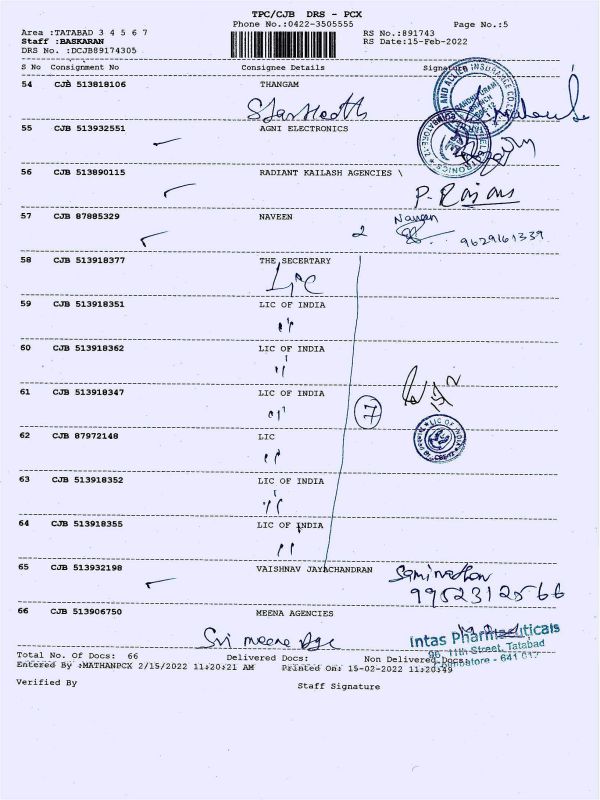 TPC/CJB DRS - PCX
Phone No.:0422-3505555 Page No.:5
Area :TATABAD 3 4 5 6 7 RS No.:891743
Staff :BASKARAN RS Date:15-Feb-2022
DRS No. :DCJB89174305
S No Consignment No Consignee Details Signature
54 CJB 513818106 THANGAM
Star Health
55 CJB 513932551 AGNI ELECTRONICS
56 CJB 513890115 RADIANT KAILASH AGENCIES \
P. Rajan
57 CJB 87885329 NAVEEN 2 Naveen
9629161339
58 CJB 513918377 THE SECERTARY
LIC
59 CJB 513918351 LIC OF INDIA
"
60 CJB 513918362 LIC OF INDIA
"
61 CJB 513918347 LIC OF INDIA
" 7
62 CJB 87972148 LIC
"
LIC OF INDIA
63 CJB 513918352 LIC OF INDIA
"
64 CJB 513918355 LIC OF INDIA
"
65 CJB 513932198 VAISHNAV JAYACHANDRAN Saminathan
9952312566
66 CJB 513906750 MEENA AGENCIES
Sri meena Age
Intas Pharmaceuticals
96, 11th Street, Tatabad
Coimbatore - 641 012
Total No. Of Docs: 66 Delivered Docs: Non Delivered Docs:
Entered By :MATHANPCX 2/15/2022 11:20:21 AM Printed On: 15-02-2022 11:20:49
Verified By Staff Signature